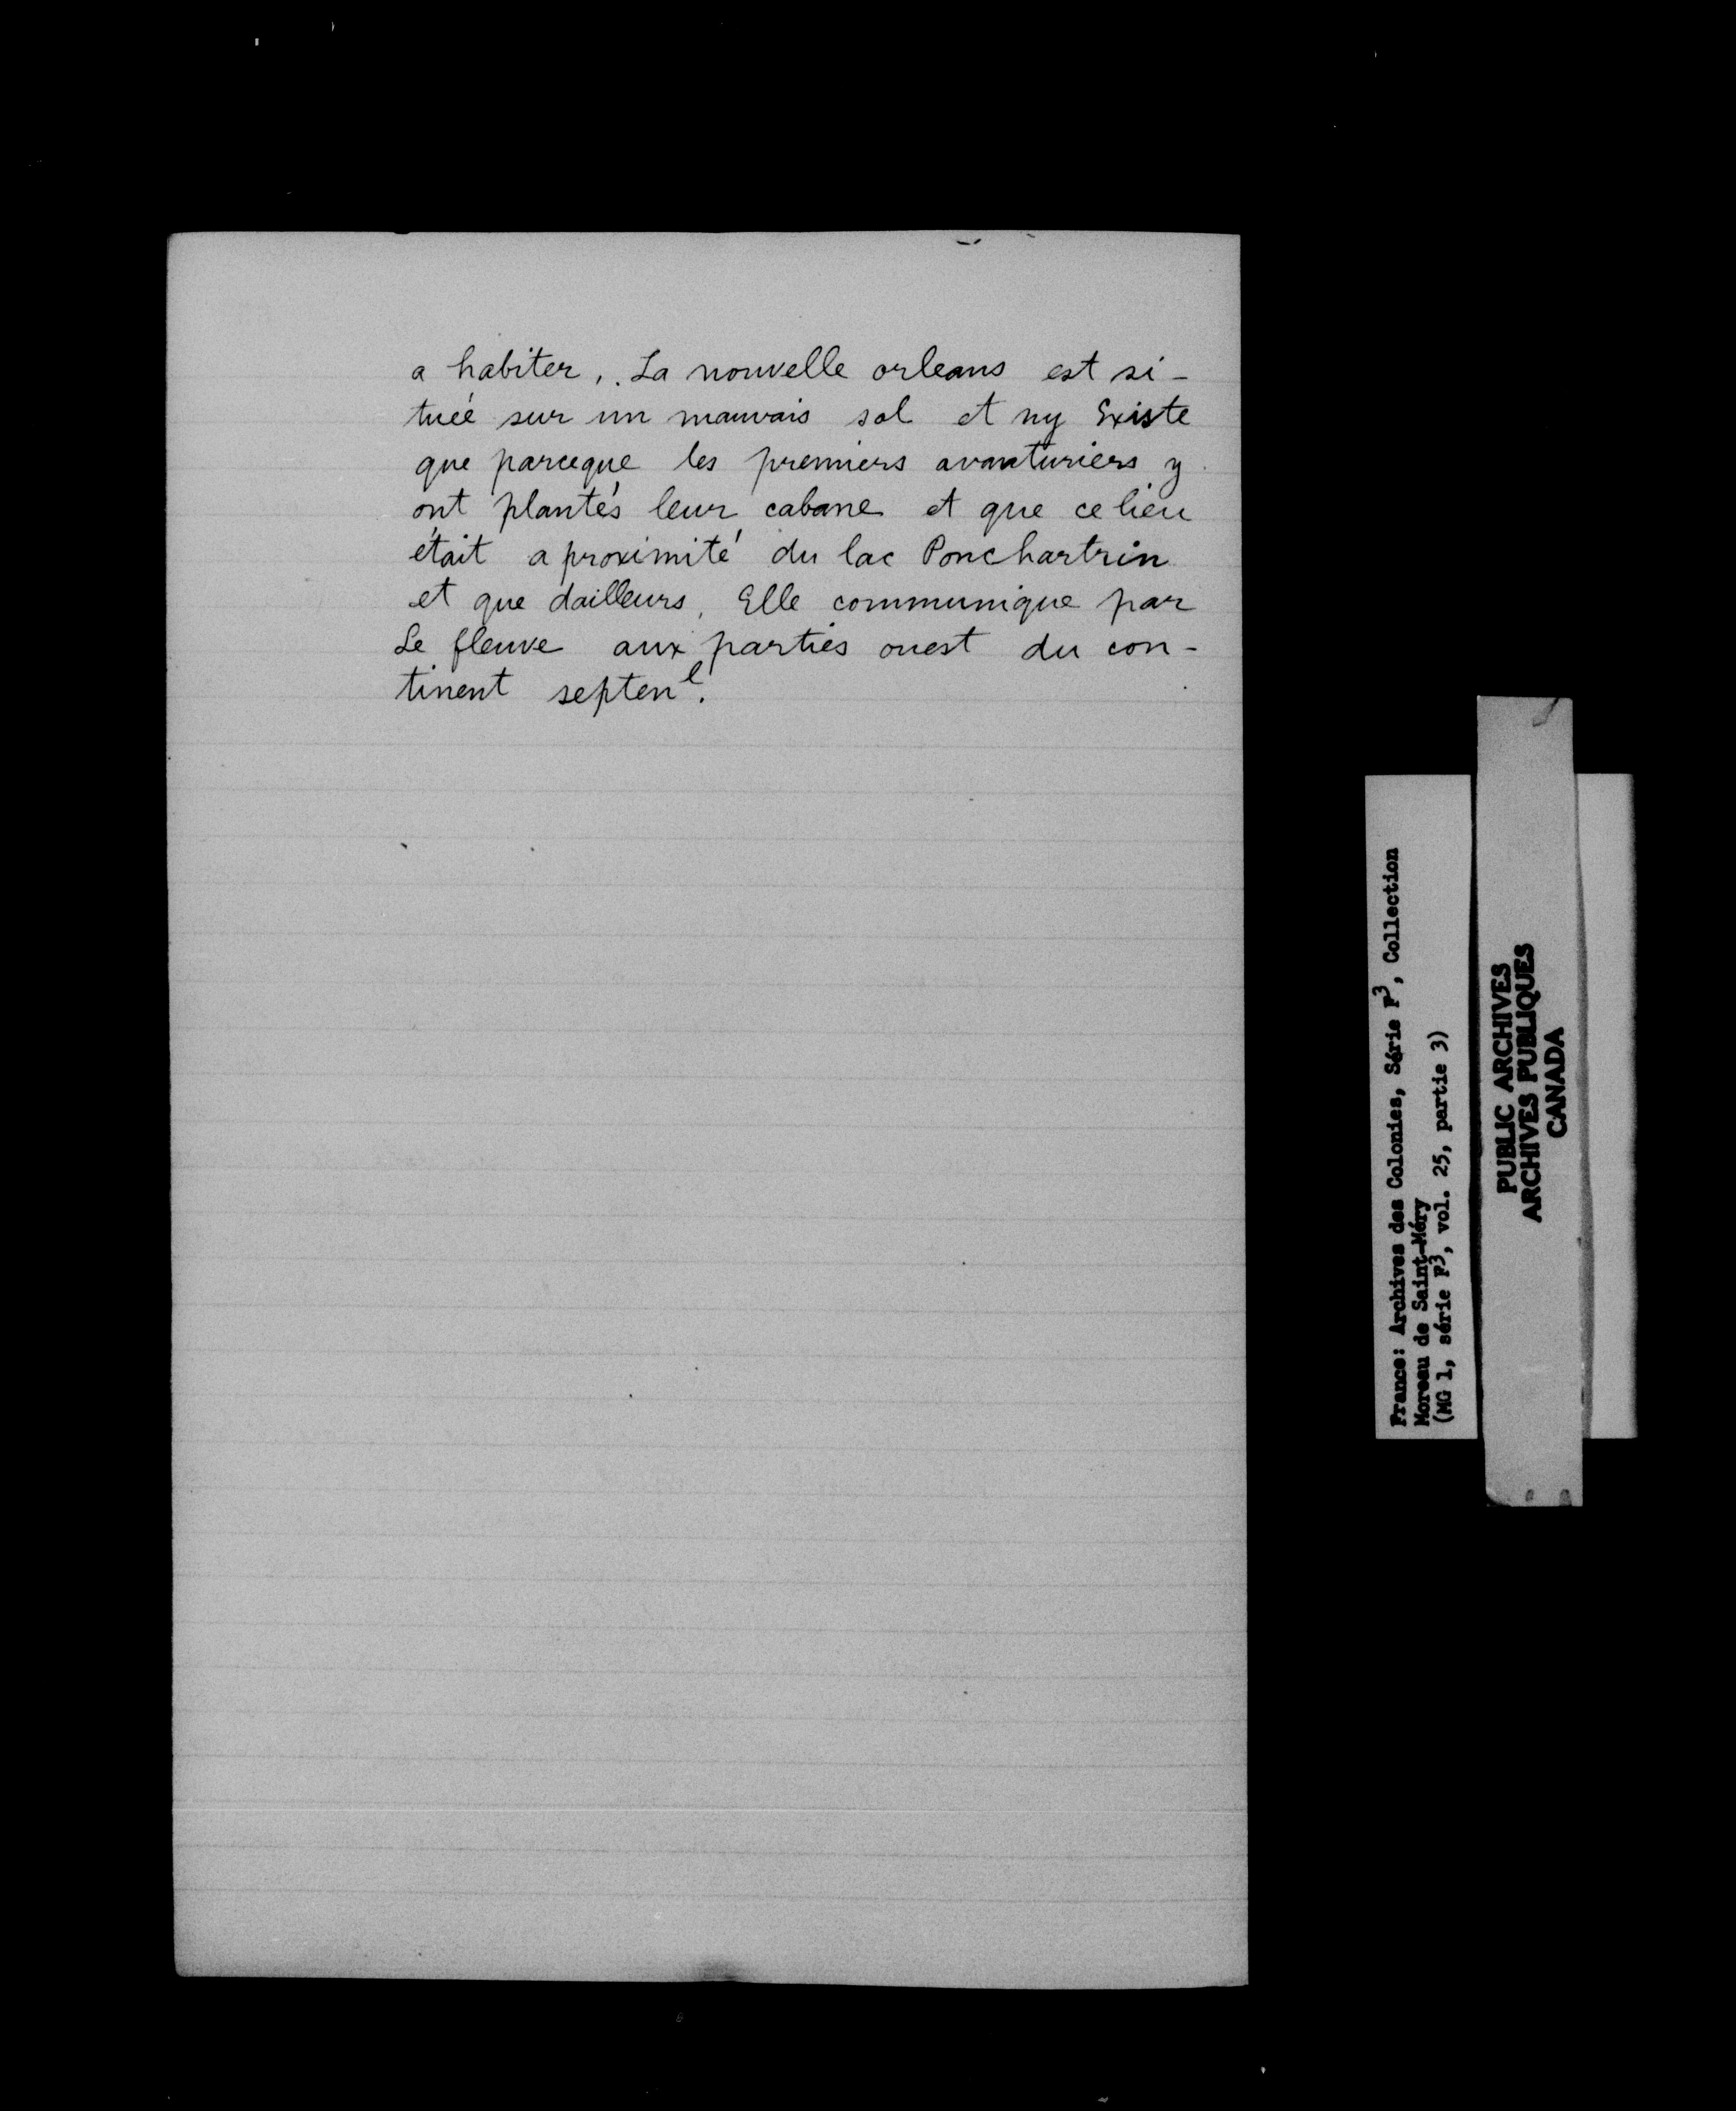 a habiter, . La nouvelle orleans est si-
tuéé sur un mauvais sol et ny Existe
que parceque les premiers avanturiers y
ont plantés leur cabane et que ce lieu
était a proximité du lac Ponchartrin
et que dailleurs, Elle communique par
Le fleuve aux parties ouest du con-
tinent septenˡ.
France: Archives des Colonies, Série F³, Collection
Moreau de Saint-Méry
(MG 1, série F³, vol. 25, partie 3)
PUBLIC ARCHIVES
ARCHIVES PUBLIQUES
CANADA